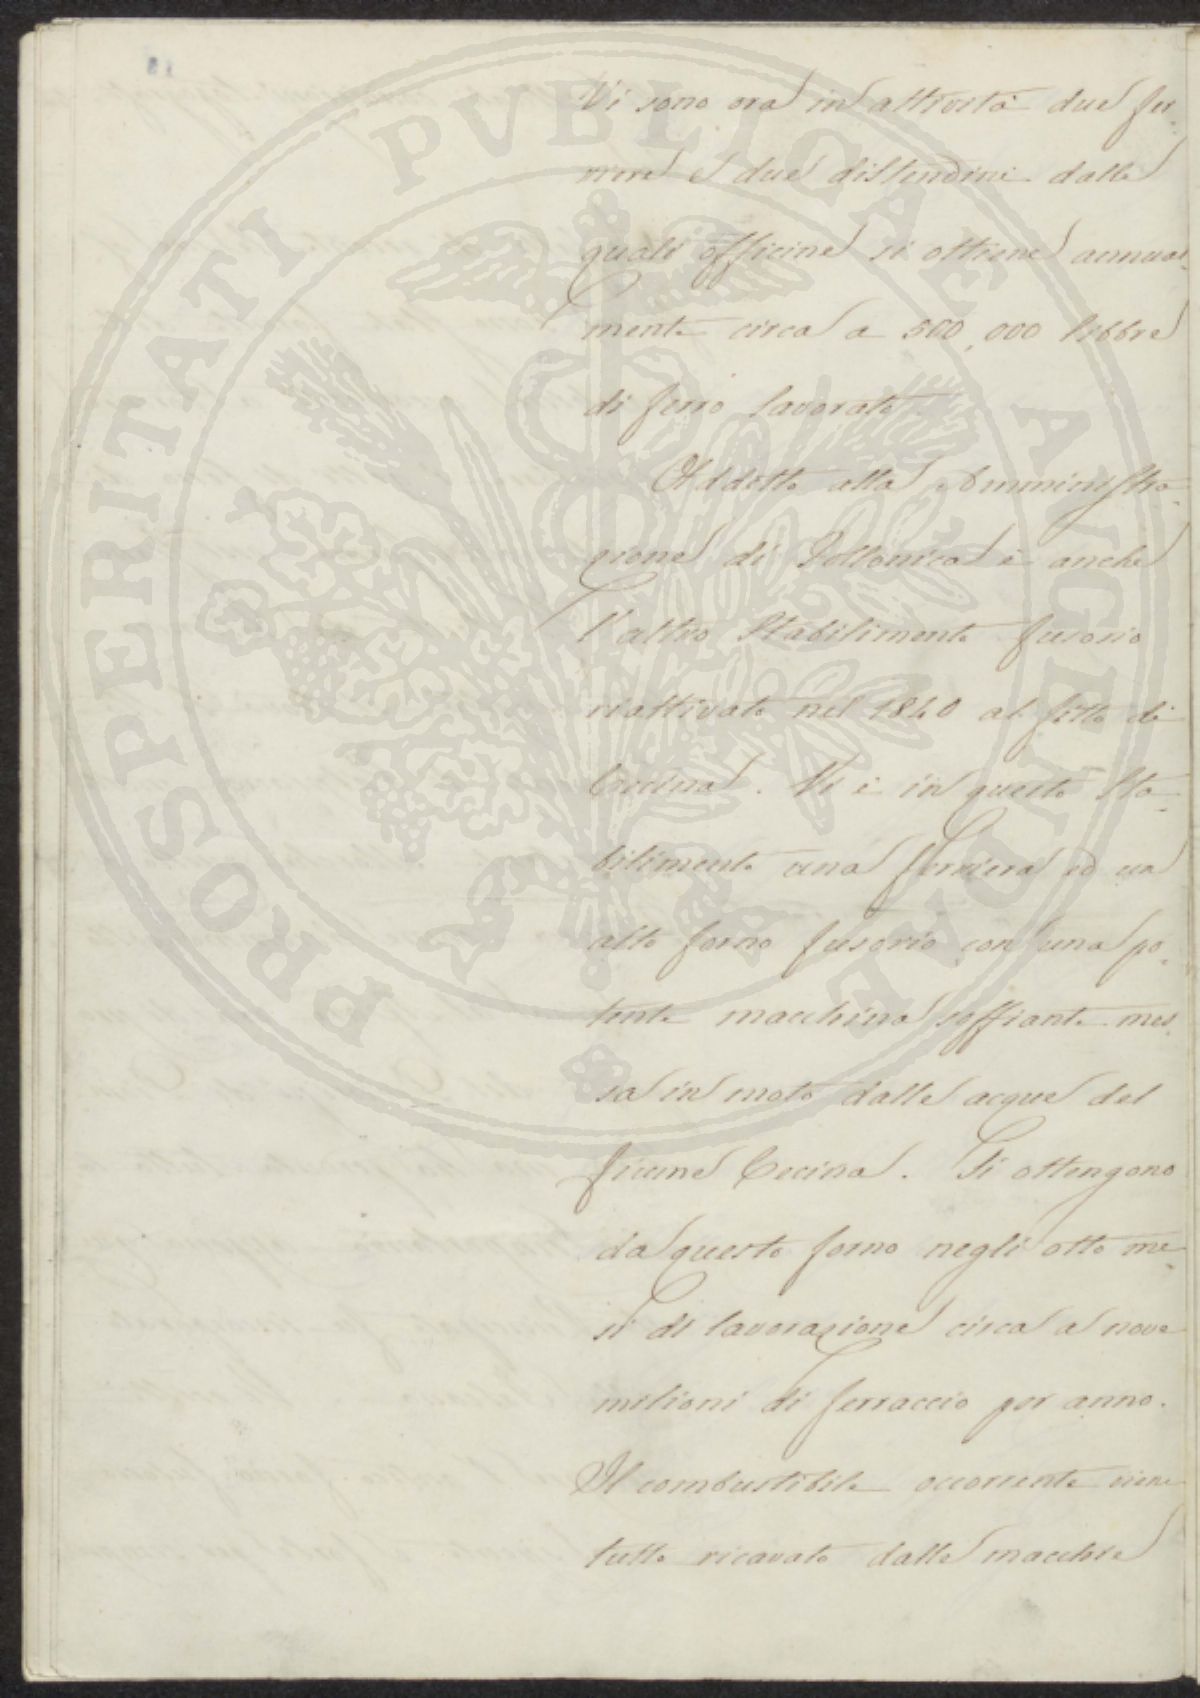 Vi sono ora in attività due fer-
riere e due distendini dalle
quali officine si ottiene annual-
mente circa a 500,000 libbre
di ferro lavorato.
Addetto alla Amministra-
zione di Follonica è anche
l'altro Stabilimento fusorio
riattivato nel 1840 al fitto di
Cecina. Vi è in questo Sta-
bilimento una ferriera ed un
alto forno fusorio con una po-
tente macchina soffiante mes-
sa in moto dalle acque del
fiume Cecina. Si ottengono
da questo forno negli otto me-
si di lavorazione circa a nove
milioni di ferraccio per anno.
Il combustibile occorrente viene
tutto ricavato dalle macchie
PROSPERITATI PVBLICAE AVGENDAE